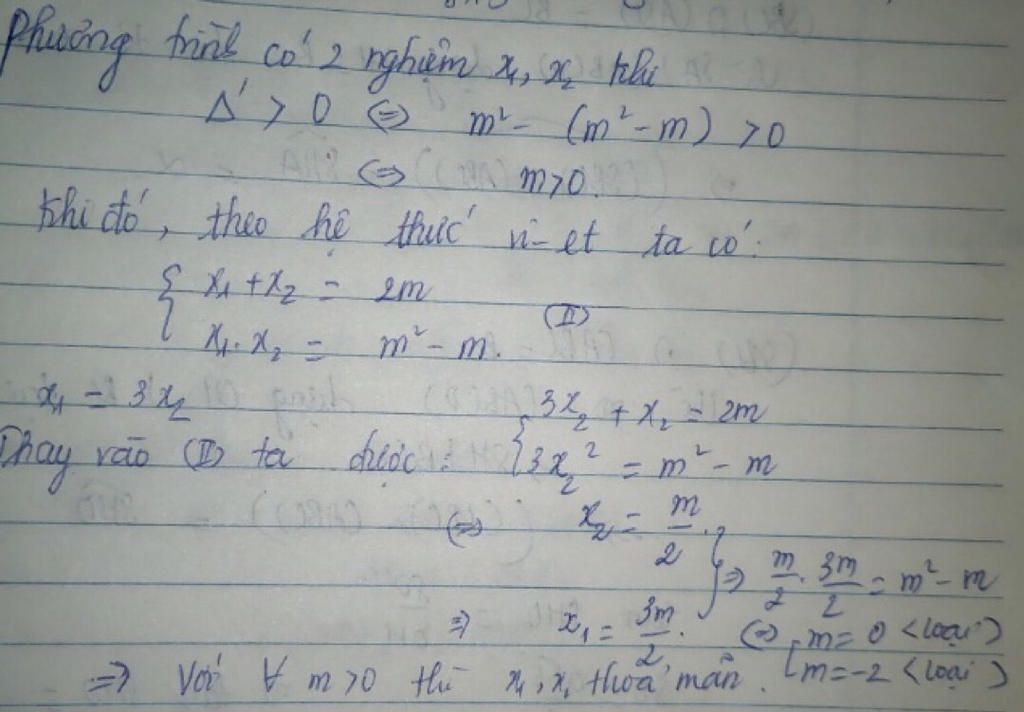 Phương trình có 2 nghiệm x₁, x₂ khi
Δ' > 0 ⇔ m² - (m² - m) > 0
⇔ m > 0.
Khi đó, theo hệ thức vi-et ta có:
{ x₁ + x₂ = 2m
x₁ . x₂ = m² - m. (II)
x₁ = 3x₂
Thay vào (II) ta được: { 3x₂ + x₂ = 2m
3x₂² = m² - m
⇔ x₂ = m/2 .
⇒ x₁ = 3m/2 . } ⇒ m/2 . 3m/2 = m² - m
⇔ [ m = 0 <loại>
m = -2 <loại>
⇒ Với ∀ m > 0 thì x₁, x₂ thoả mãn.